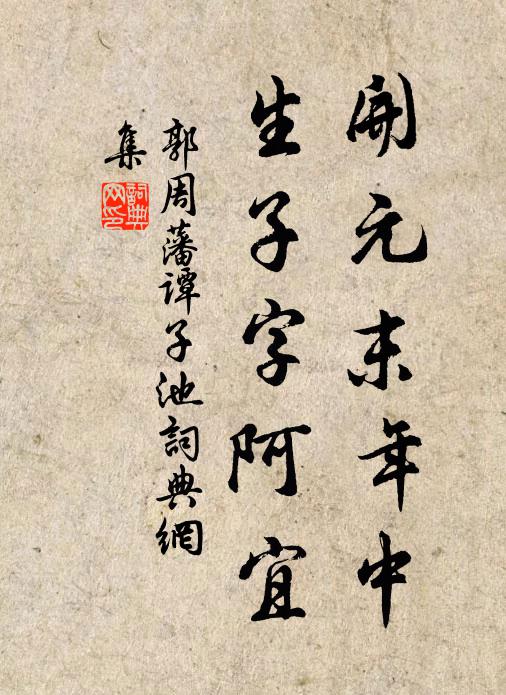 開元末年中
生子字阿宜
郭周藩谭子池詞典網
集
詞典
网印